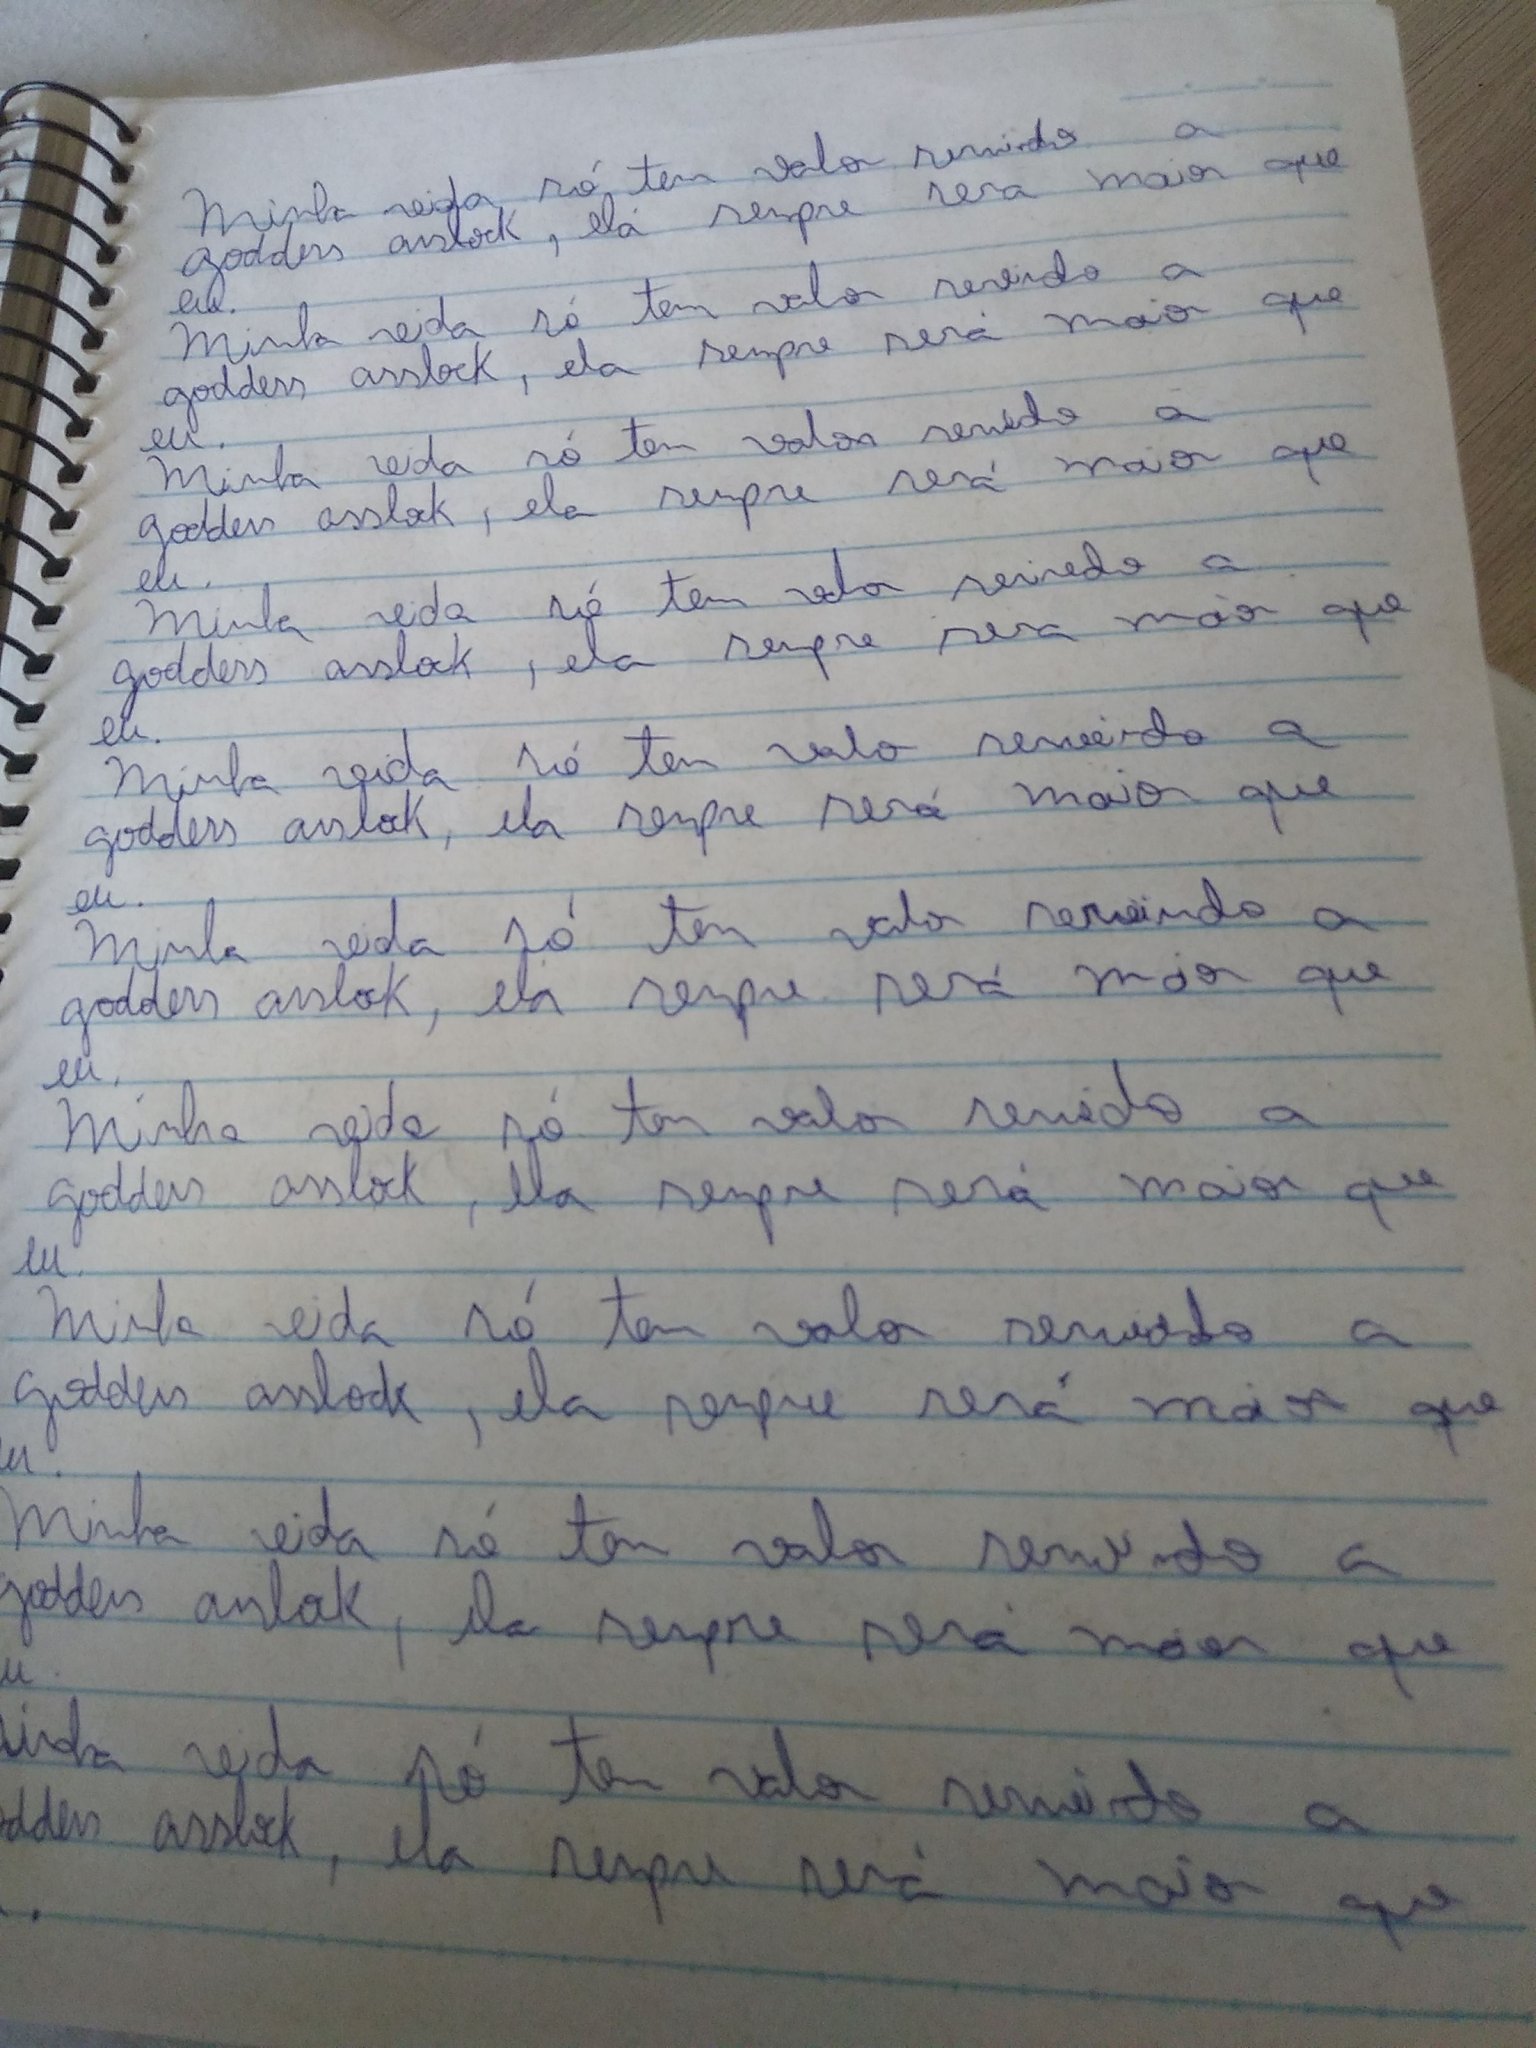 Minha vida só tem valor servindo a
goddess asslock, ela sempre sera maior que
eu.
Minha vida só tem valor servindo a
goddess asslock, ela sempre será maior que
eu.
Minha vida só tem valor servindo a
goddess asslock, ela sempre será maior que
eu.
Minha vida só tem valor servindo a
goddess asslock, ela sempre sera maior que
eu.
Minha vida só tem valo servindo a
goddess asslock, ela sempre será maior que
eu.
Minha vida só tem valor servindo a
goddess asslock, ela sempre será maior que
eu.
Minha vida só tem valor servindo a
goddess asslock, ela sempre será maior que
eu.
Minha vida só tem valor servindo a
goddess asslock, ela sempre será maior que
eu.
Minha vida só tem valor servindo a
goddess asslock, ela sempre será maior que
u.
inha vida só tem valor servindo a
oddess asslock, ela sempre será maior que
.